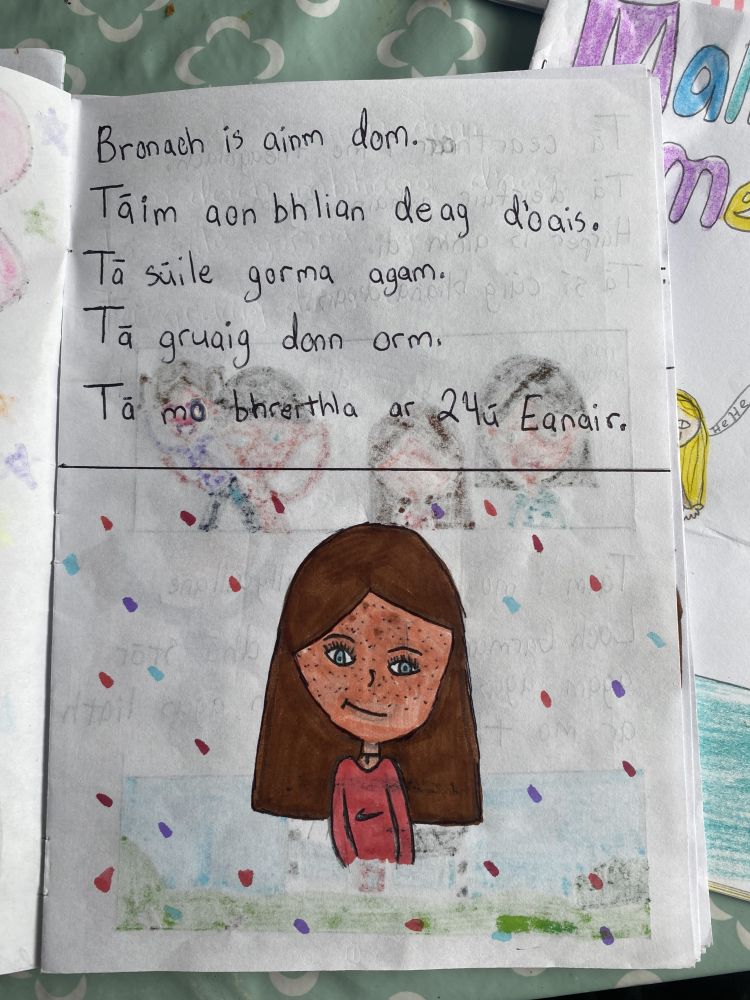 Bronach is ainm dom.
Tāim aon bhlian deag d'oais.
Tā sūile gorma agam.
Tā gruaig donn orm.
Tā mo bhreithla ar 24ū Eanair.
HeHe